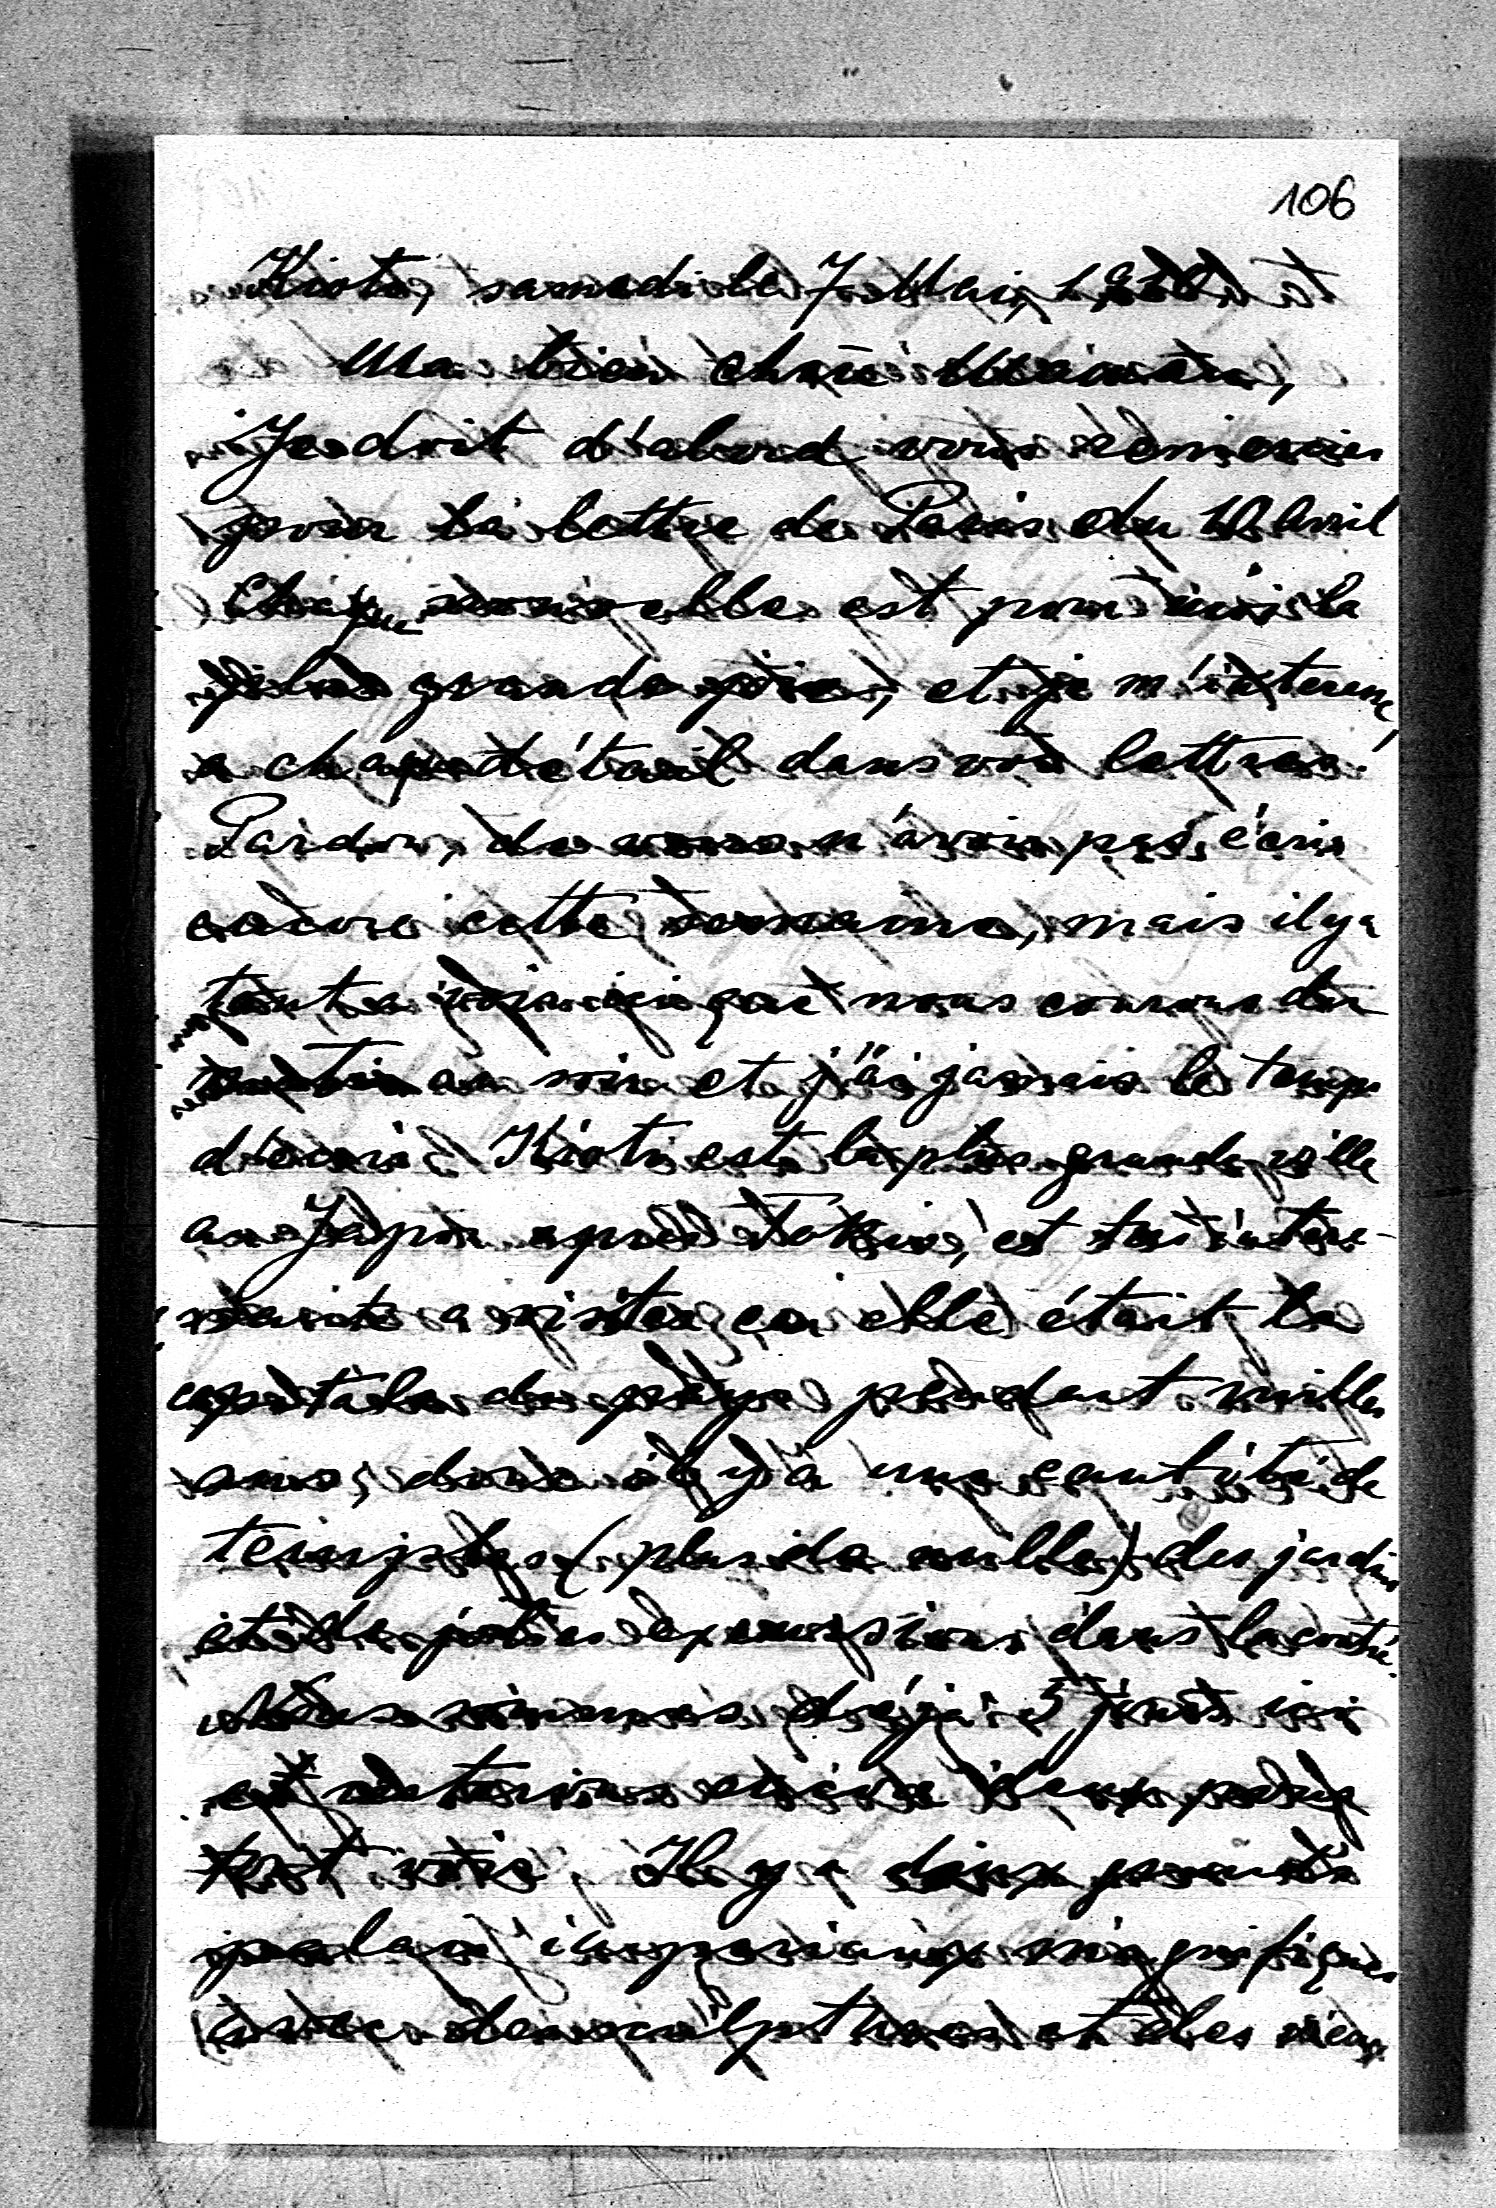 106
Kioto, samedi le 7 Mai, 1910
Ma bien chère Maman,
Je doit d'abord vous remercier
pour la lettre de Paris du 10 Avril
Chaque nouvelle est pour moi la
plus grande joie, et je m'interesse
a chaque détail dans vos lettres!
Pardon, de vous n'avoir pas écris
encore cette semaine, mais il y a
tant a voir ici que nous courons du
matin au soir et j'ai jamais le temps
d'écrir. Kioto est la plus grande ville
au Japon après Tokio, est très intere-
sante a visiter, car elle était la
capitale du pays pendant milles
ans, donc il y a une cantité de
temples (plus de mille) des jardins
et de jolies excursions dans la contrée.
Nous sommes déja 5 jours ici
et resterions encore deux pour
tout voir. Il y a deux grands
palais imperiaux magnifiques
avec des sculptures et des vieux